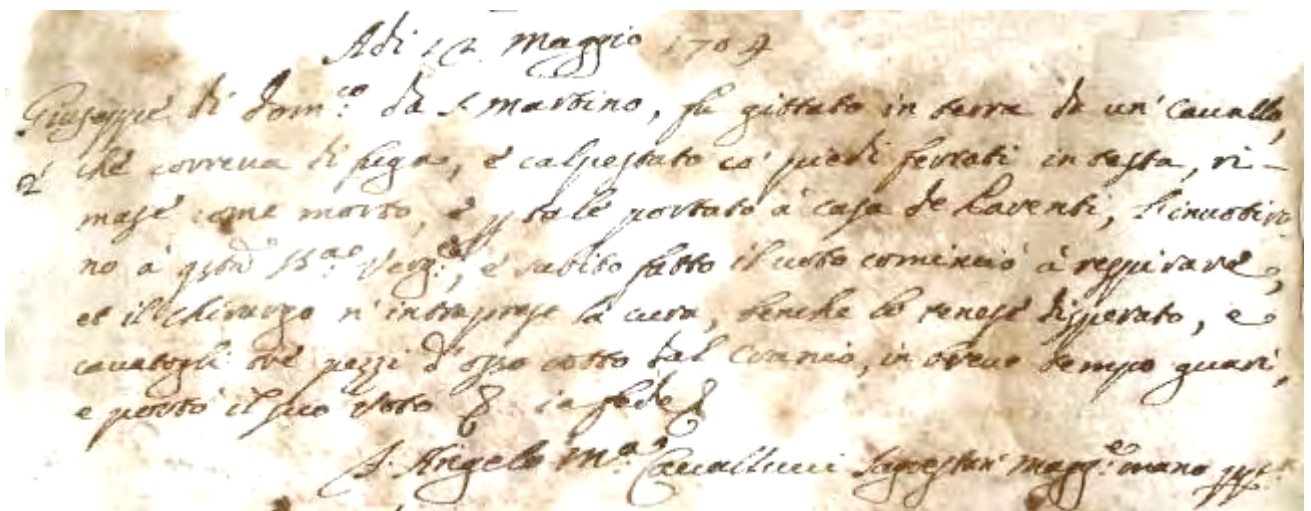 Adi 12 Maggio 1704
Giuseppe di Dom.co da S. Martino, fu gittato in terra da un' Cauallo,
che correua di fuga, e calpestato co' piedi ferrati in testa, ri-
mase come morto, e p tale portato à casa de Lauenti, l'inuotiro
no à q.sta S.ma Verg.e, e subito fatto il uoto cominciò à respirare,
et il chirurgo n' intraprese la cura, benche lo tenesse disperato, e
cauatogli tre pezzi d'osso rotto dal Cranio, in breue tempo guarì,
e portò il suo Voto & in fede &
F. Angelo M.a Cauallucci Sagrestan' Magg.e mano pp.a